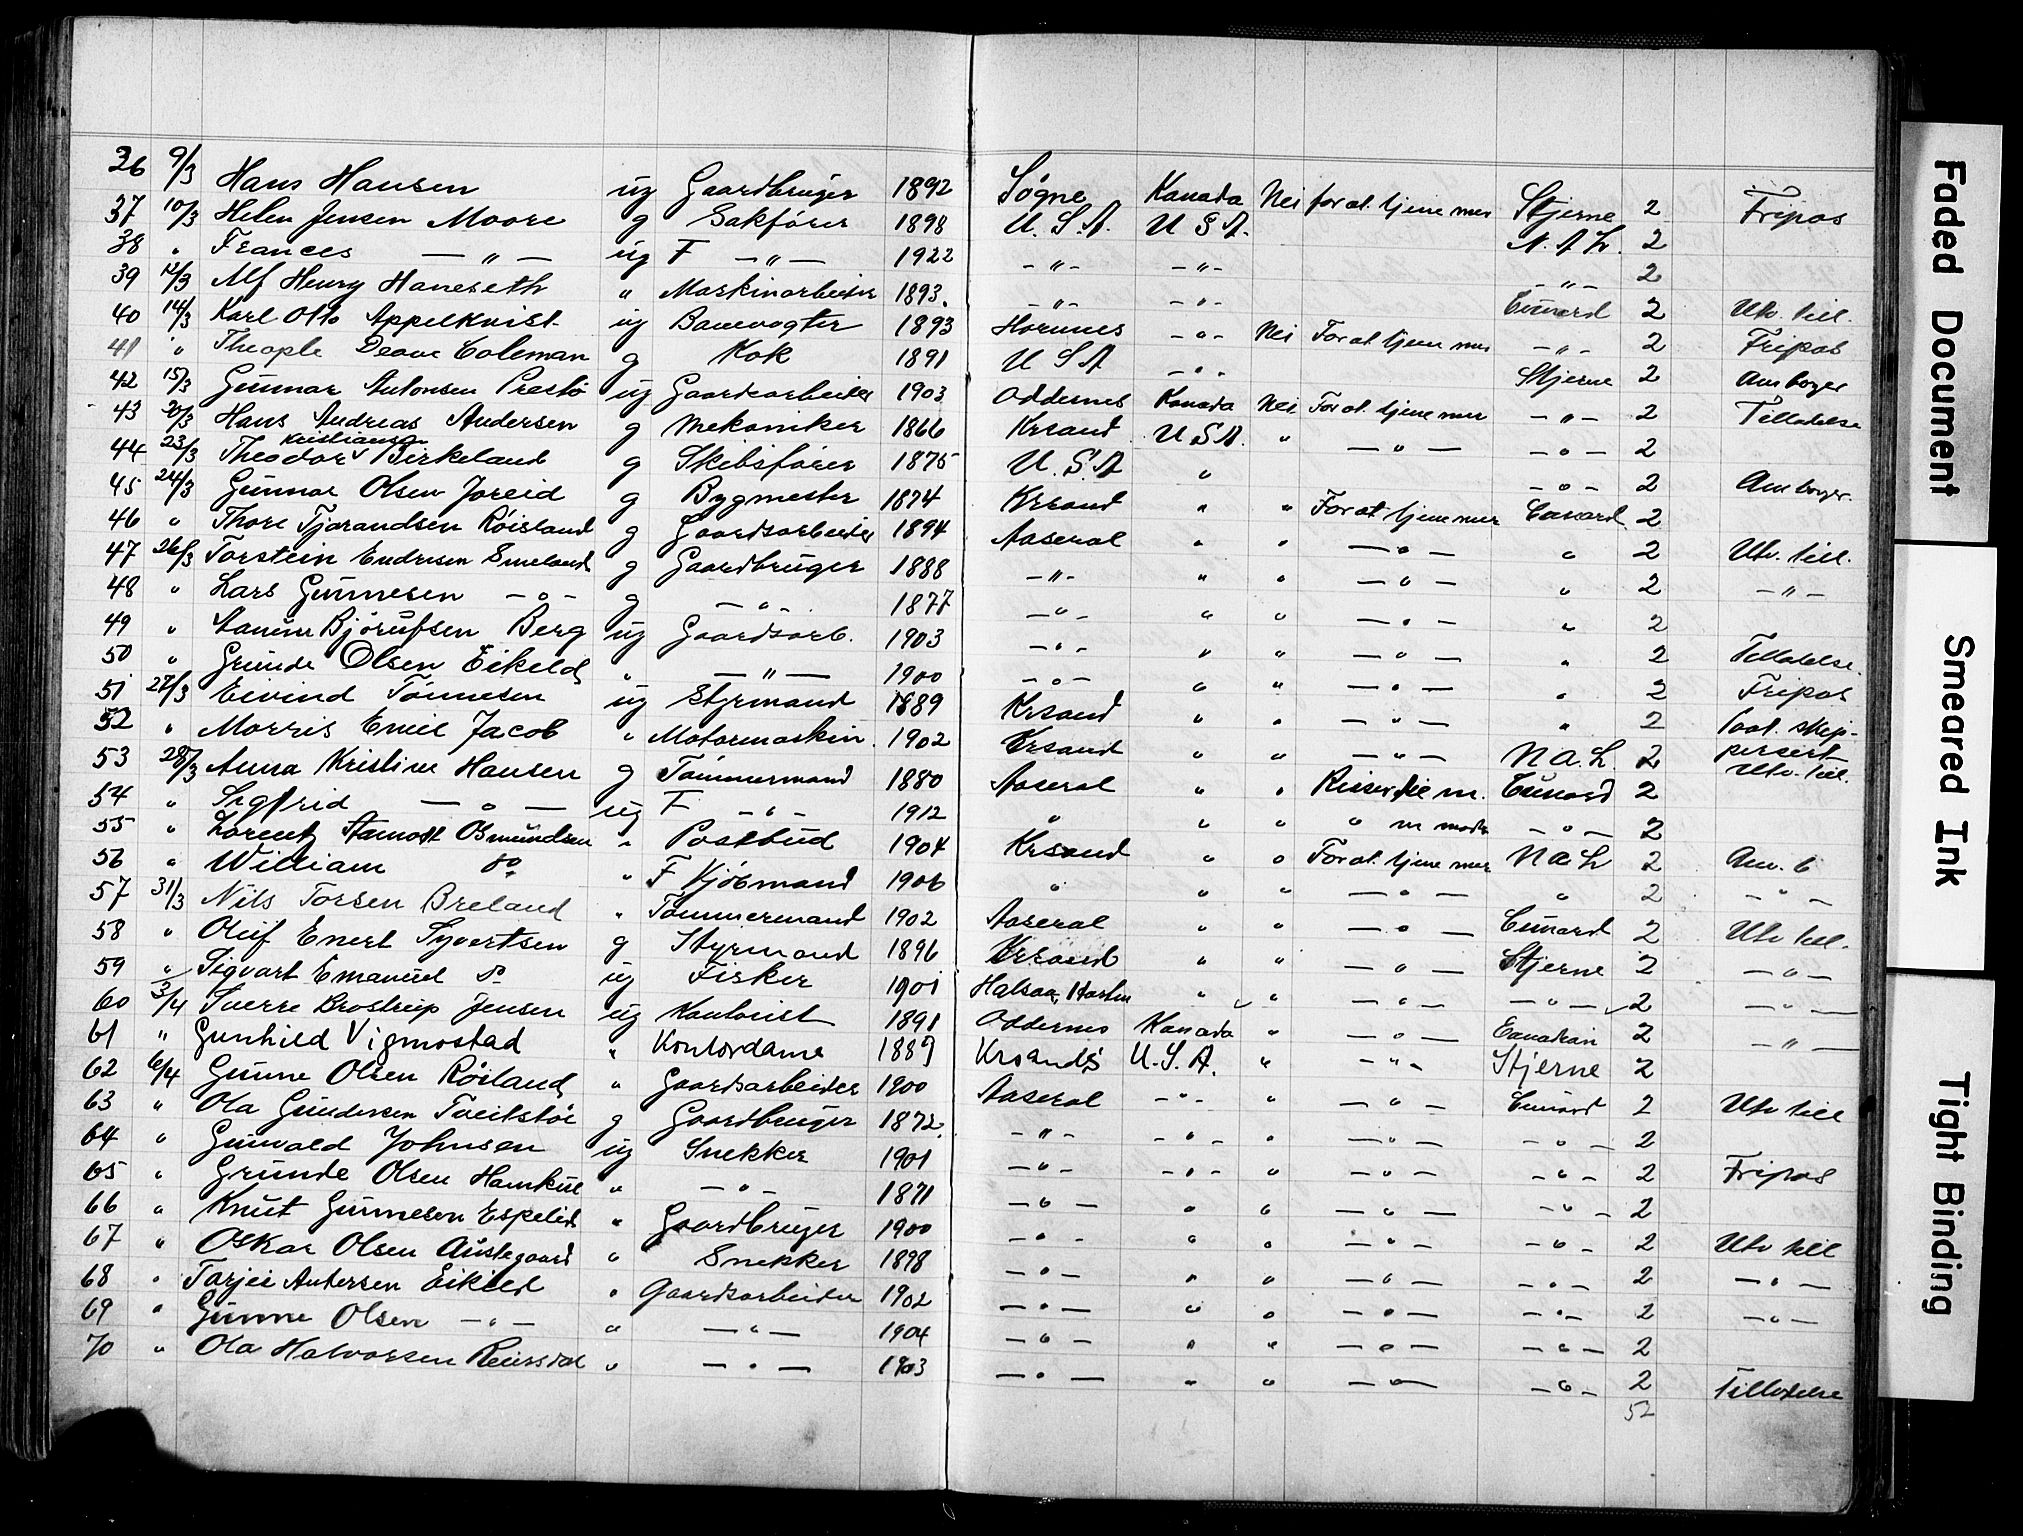 36 9/3 Hans Hansen ug Gaardbruger 1892 Søgne Kanada Nei for at tjene mer Stjerne 2 Fripas
37 10/3 Helen Jensen Moore g Sakfører 1898 U.S.A. U S A. N. A L. 2
38 " Frances — " — ug F — " — 1922 — " — — " — — " — 2
39 12/3 Alf Henry Haneseth " Maskinarbeider 1893. — " — — " — Cunard 2 Utv. till.
40 14/3 Karl Otto Appelkvist ug Banevogter 1893 Hornnes — " — Nei For at tjene mer — " — 2 Fripas
41 " Theople Deave Coleman g Kok 1891 U S A — " — Stjerne 2 Am borger
42 15/3 Gunnar Antonsen Prestø ug Gaardsarbeider 1903 Oddernes Kanada Nei For at tjene mer — " — 2 Tilladelse
43 20/3 Hans Andreas Andersen g Mekaniker 1866 Krsand U S A. " — " — — " — 2
44 23/3 Theodor Kristiansen Birkeland g Skibsfører 1875 U. S. A " — " — 2 Am borger.
45 24/3 Gunnar Olsen Joreid g Bygmester 1874 Krsand " " For at tjene mer Cunard 2
46 " Thore Tjorandsen Røisland g Gaardsarbeider 1894 Aaseral " " — " — " 2 Utv. till.
47 26/3 Torstein Endresen Smeland g Gaardbruger 1888 — " — " " — " — " 2 — " —
48 " Lars Gunnesen — " — g — " — 1877 — " — " " — " — " 2
49 " Bjørufsen Berg ug Gaardsarb. 1903 — " — " " — " — " 2 Tilladelse
50 " Grunde Olsen Eikild " — " — 1900 — " — " " — " — " 2 Fripas
51 27/3 Eivind Tønnesen ug Styrmand 1889 Krsand " " — " — " 2
52 " Morris Emil Jacob " Motormaskin. 1902 Krsand " " — " — N A. L. 2 Utv. till.
53 28/3 Anna Kristine Hansen g Tømmermand 1880 Aaseral " " Reiser Cunard 2
54 " Sigfrid — " — ug F — " — 1912 " " " " m moder — " — 2
55 " Lorentz Osmundsen " Postbud 1904 Krsand " " For at tjene mer N A L 2 Am. b
56 " William do " F Kjøbmand 1906 " " " — " — " 2 — " —
57 31/3 Nils Torsen Breland " Tømmermand 1902 Aaseral " " — " — Cunard 2 Utv till.
58 " Oluf Enert Syvertsen g Styrmand 1896 Krsand " " — " — Stjerne 2 — " —
59 " Sigvart Emanuel do ug Fisker 1901 Halsaa, " " — " — — " — 2 — " —
60 3/4 Sverre Brostrup Jensen ug Kontorist 1891 Oddernes Kanada " — " — Canadian 2 — " —
61 " Gunhild Vigmostad " Kontordame 1889 Krsands U.S.A. " — " — Stjerne 2
62 6/4 Gunne Olsen Røiland " Gaardsarbeider 1900 Aaseral — " — " — " — Cunard 2 Utv till
63 " Ola Gundersen Tveitstøe g Gaardbruger 1872. — " — — " — " — " — — " — 2
64 " Gunvald Johnsen ug Snekker 1901 — " — — " — " — " — — " — 2 Fripas
65 " Grunde Olsen Hamkül " — " — 1871 — " — " " — " — — " — 2
66 " Knut Gunnesen Espelid " Gaardbruger 1900 — " — " " — " — — " — 2 Utv till
67 " Oskar Olsen Austegaard " Snekker 1898 — " — " " — " — — " — 2 — " —
68 " Tarjei Andersen Eikild " Gaardsarbeider 1902 — " — " " — " — — " — 2 — " —
69 " Gunne Olsen — " — " — " — 1904 — " — " " — " — — " — 2
70 " Ola Halvorsen Reirsdal " — " — 1903 — " — " " — " — — " — 2 Tilladelse
52
Faded Document
Smeared Ink
Tight Binding